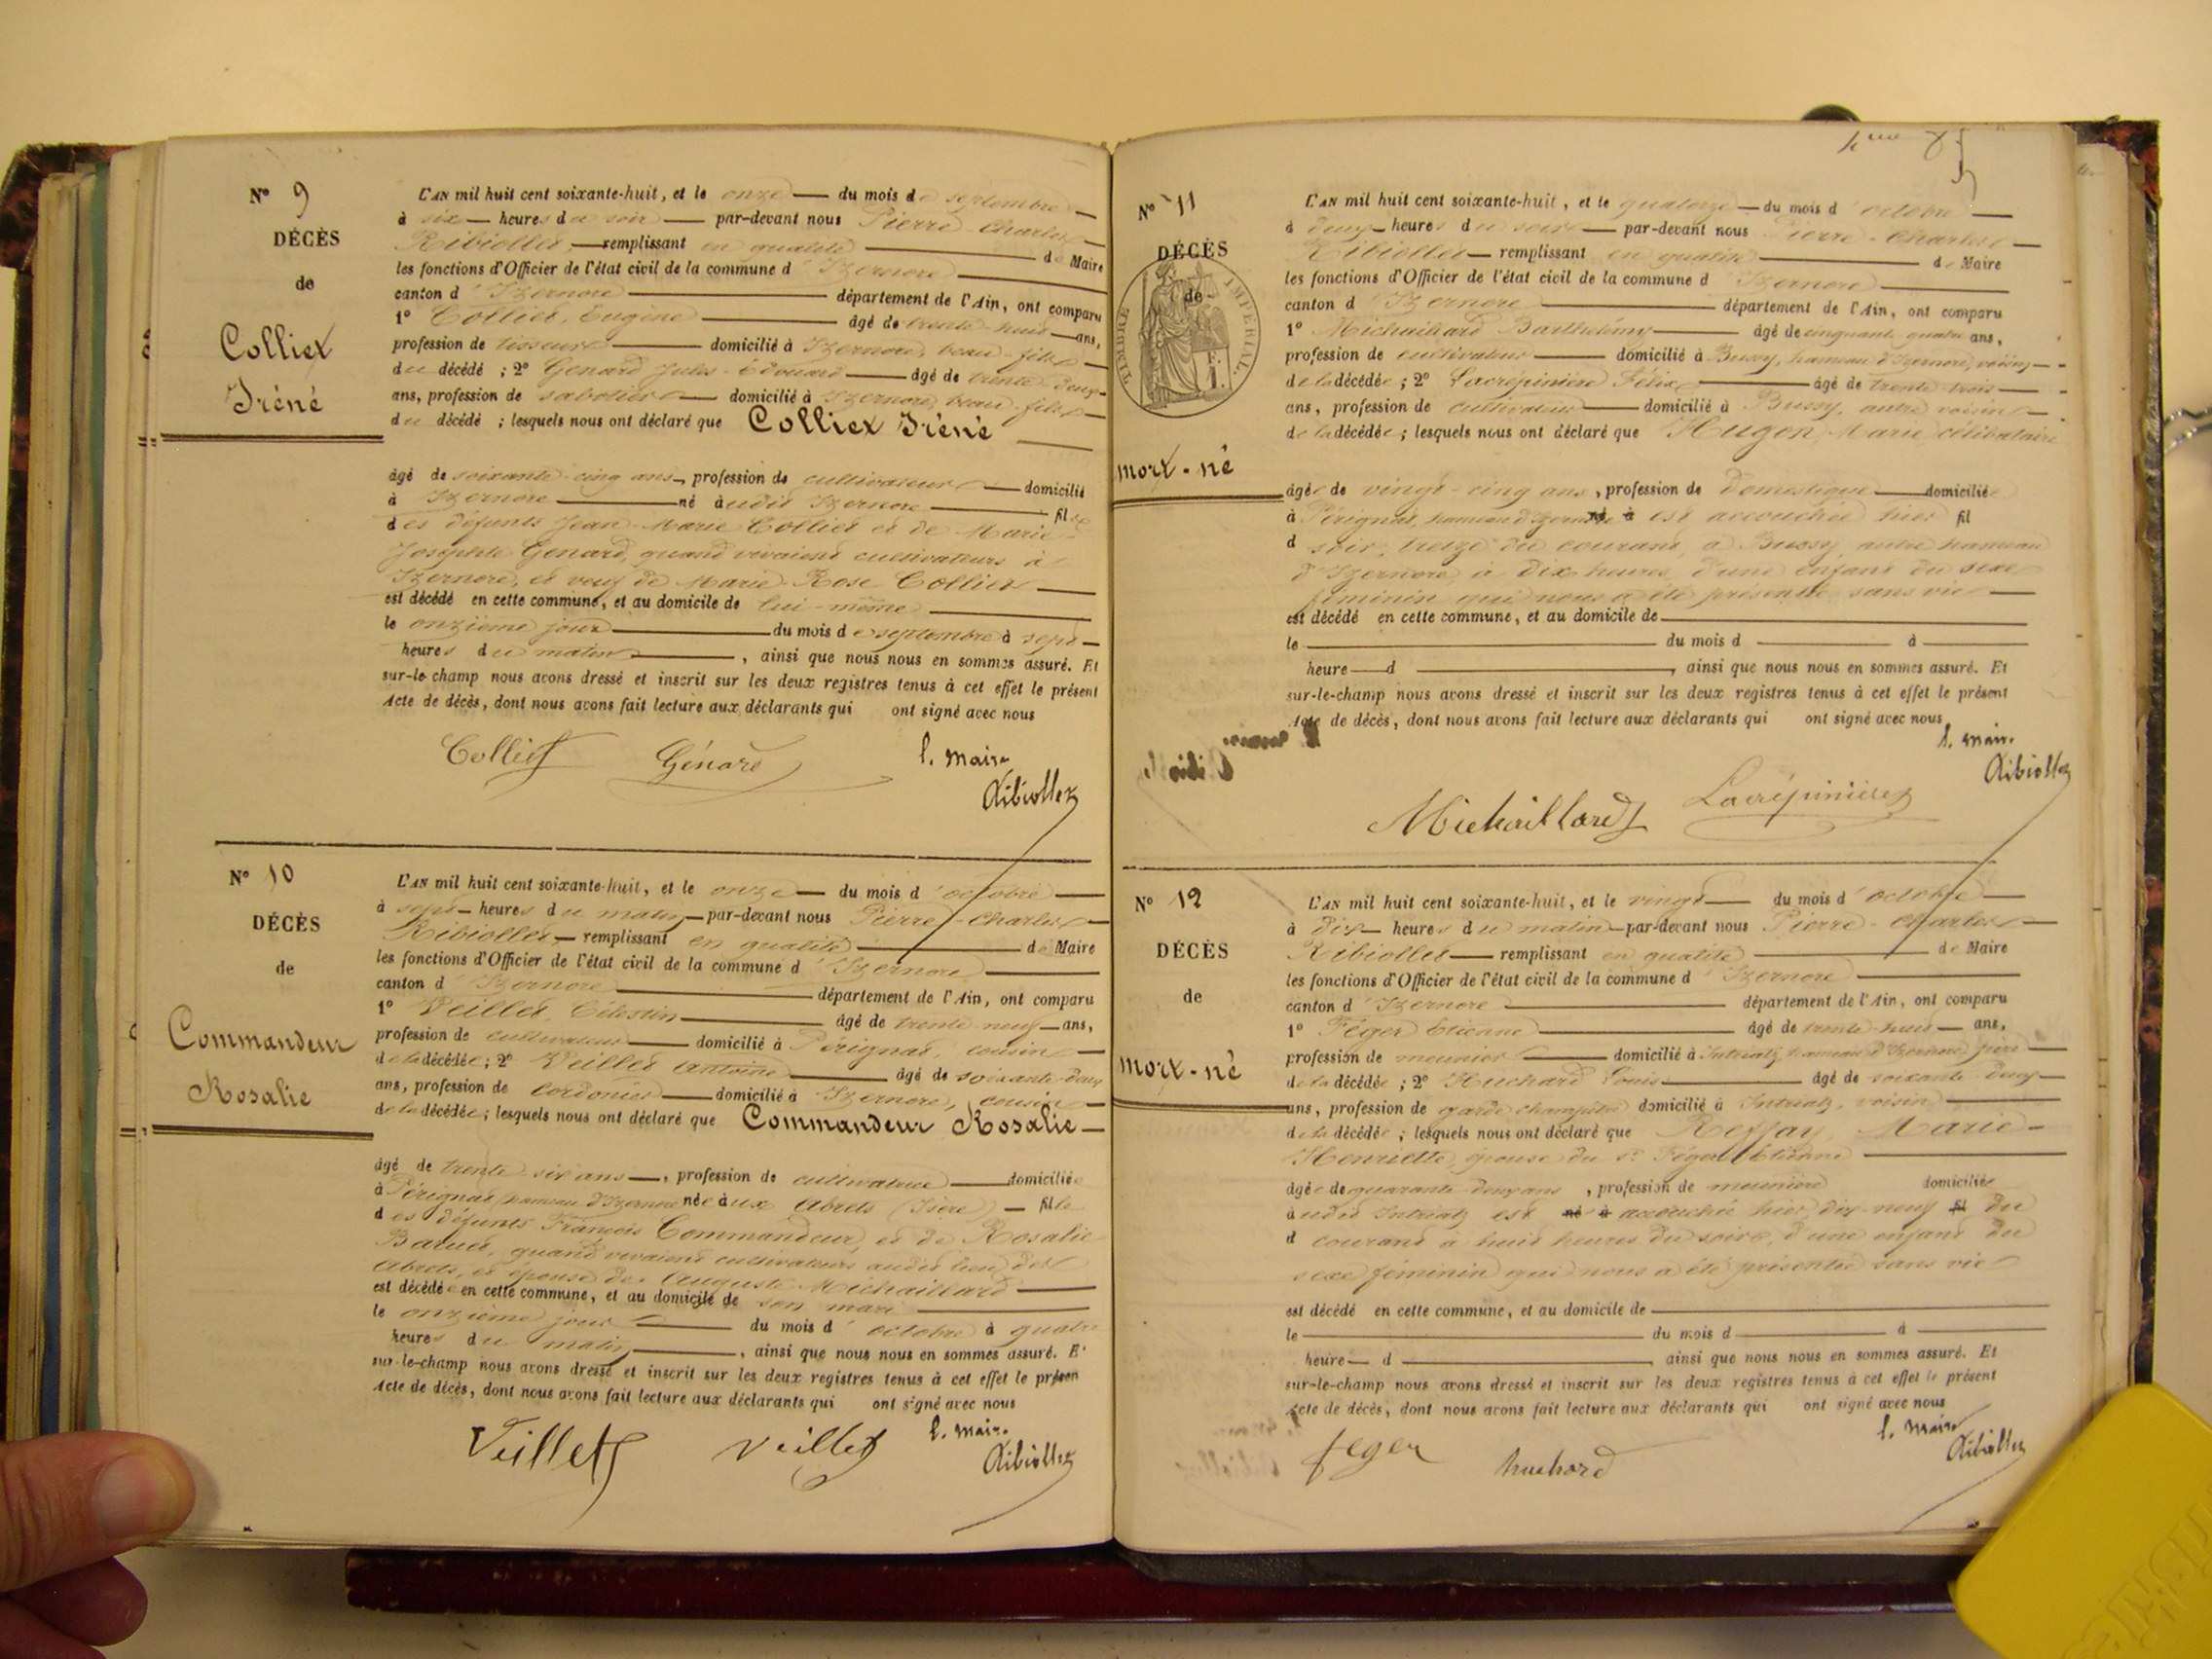 N° 9
DÉCÈS
de
Colliex
Iréné
L'AN mil huit cent soixante-huit, et le onze du mois de septembre
à six heures du soir par-devant nous Pierre-Charles
Ribiollet remplissant en qualité de Maire
les fonctions d'Officier de l'état civil de la commune d'Izernore
canton d'Izernore département de l'Ain, ont comparu
1° Colliet, Eugène âgé de trente-huit ans,
profession de tisseur domicilié à Izernore, beau-fils
du décédé ; 2° Genard Jules-Edouard âgé de trente-deux
ans, profession de sabotier domicilié à Izernore, beau-fils
du décédé ; lesquels nous ont déclaré que Colliex Iréné
âgé de soixante-cinq ans, profession de cultivateur domicilié
à Izernore né audit Izernore fils
des défunts Jean-Marie Colliet et de Marie-
Josephte Genard, quand vivaient cultivateurs à
Izernore, et veuf de Marie-Rose Colliet
est décédé en cette commune, et au domicile de lui-même
le onzième jour du mois de septembre à sept
heures du matin, ainsi que nous nous en sommes assuré. Et
sur-le-champ nous avons dressé et inscrit sur les deux registres tenus à cet effet le présent
Acte de décès, dont nous avons fait lecture aux déclarants qui ont signé avec nous
Colliet Génard l. Maire
Ribiollet
N° 10
DÉCÈS
de
Commandeur
Rosalie
L'AN mil huit cent soixante-huit, et le onze du mois d'octobre
à sept heures du matin par-devant nous Pierre-Charles
Ribiollet, remplissant en qualité de Maire
les fonctions d'Officier de l'état civil de la commune d'Izernore
canton d'Izernore département de l'Ain, ont comparu
1° Veillet, Célestin âgé de trente-neuf ans,
profession de cultivateur domicilié à Pérignat, cousin
de la décédée ; 2° Veillet Antoine âgé de soixante-deux
ans, profession de cordonier domicilié à Izernore, cousin
de la décédée ; lesquels nous ont déclaré que Commandeur Rosalie
âgé de trente-six ans, profession de cultivatrice domiciliée
à Pérignat, hameau d'Izernore née aux Abrets (Isère) fille
des défunts François Commandeur, et de Rosalie
quand vivaient cultivateurs audit lieu des
Abrets, et épouse de Auguste Michaillard
est décédée en cette commune, et au domicile de son mari
le onzième jour du mois d'octobre à quatre
heures du matin, ainsi que nous nous en sommes assuré. Et
sur-le-champ nous avons dressé et inscrit sur les deux registres tenus à cet effet le présen
Acte de décès, dont nous avons fait lecture aux déclarants qui ont signé avec nous
Veillet Veillet l. Maire
Ribiollet
N° 11
DÉCÈS
de
TIMBRE IMPÉRIAL
mort-né
L'AN mil huit cent soixante-huit, et le quatorze du mois d'octobre
à deux heures du soir par-devant nous Pierre-Charles
Ribiollet remplissant en qualité de Maire
les fonctions d'Officier de l'état civil de la commune d'Izernore
canton d'Izernore département de l'Ain, ont comparu
1° Michaillard Barthélemy âgé de cinquante-quatre ans,
profession de cultivateur domicilié à Bussy, hameau d'Izernore, voisin
de la décédée ; 2° Lacrépinière Félix âgé de trente-trois
ans, profession de cultivateur domicilié à Bussy, autre voisin
de la décédée ; lesquels nous ont déclaré que Hugon, Marie célibataire
âgée de vingt-cinq ans, profession de domestique domiciliée
à Pérignat, hameau d'Izernore né à est accouchée hier fil
d soir, treize du courant, à Bussy, autre hameau
d'Izernore à dix heures, d'une enfant du sexe
féminin qui nous a été présentée sans vie
est décédé en cette commune, et au domicile de
le du mois d à
heure d, ainsi que nous nous en sommes assuré. Et
sur-le-champ nous avons dressé et inscrit sur les deux registres tenus à cet effet le présent
Acte de décès, dont nous avons fait lecture aux déclarants qui ont signé avec nous
l. Maire
Ribiollet
Michaillard Lacrépinière
N° 12
DÉCÈS
de
mort-né
L'AN mil huit cent soixante-huit, et le vingt du mois d'octobre
à dix heures du matin par-devant nous Pierre-Charles
Ribiollet remplissant en qualité de Maire
les fonctions d'Officier de l'état civil de la commune d'Izernore
canton d'Izernore département de l'Ain, ont comparu
1° Féger Etienne âgé de trente-huit ans,
profession de meunier domicilié à Intriatz, hameau d'Izernore, père
de la décédée ; 2° Huchard Louis âgé de soixante-deux
ans, profession de garde champêtre domicilié à Intriatz, voisin
de la décédée ; lesquels nous ont déclaré que Marie-
Henriette, épouse du sr Féger Etienne
âgée de quarante-deux ans, profession de meunière domiciliée
audit Intriatz est né à accouchée hier dix-neuf fil du
d courant à huit heures du soir, d'une enfant du
sexe féminin qui nous a été présentée sans vie
est décédé en cette commune, et au domicile de
le du mois d à
heure d, ainsi que nous nous en sommes assuré. Et
sur-le-champ nous avons dressé et inscrit sur les deux registres tenus à cet effet le présent
Acte de décès, dont nous avons fait lecture aux déclarants qui ont signé avec nous
feger huchard l. Maire
Ribiollet